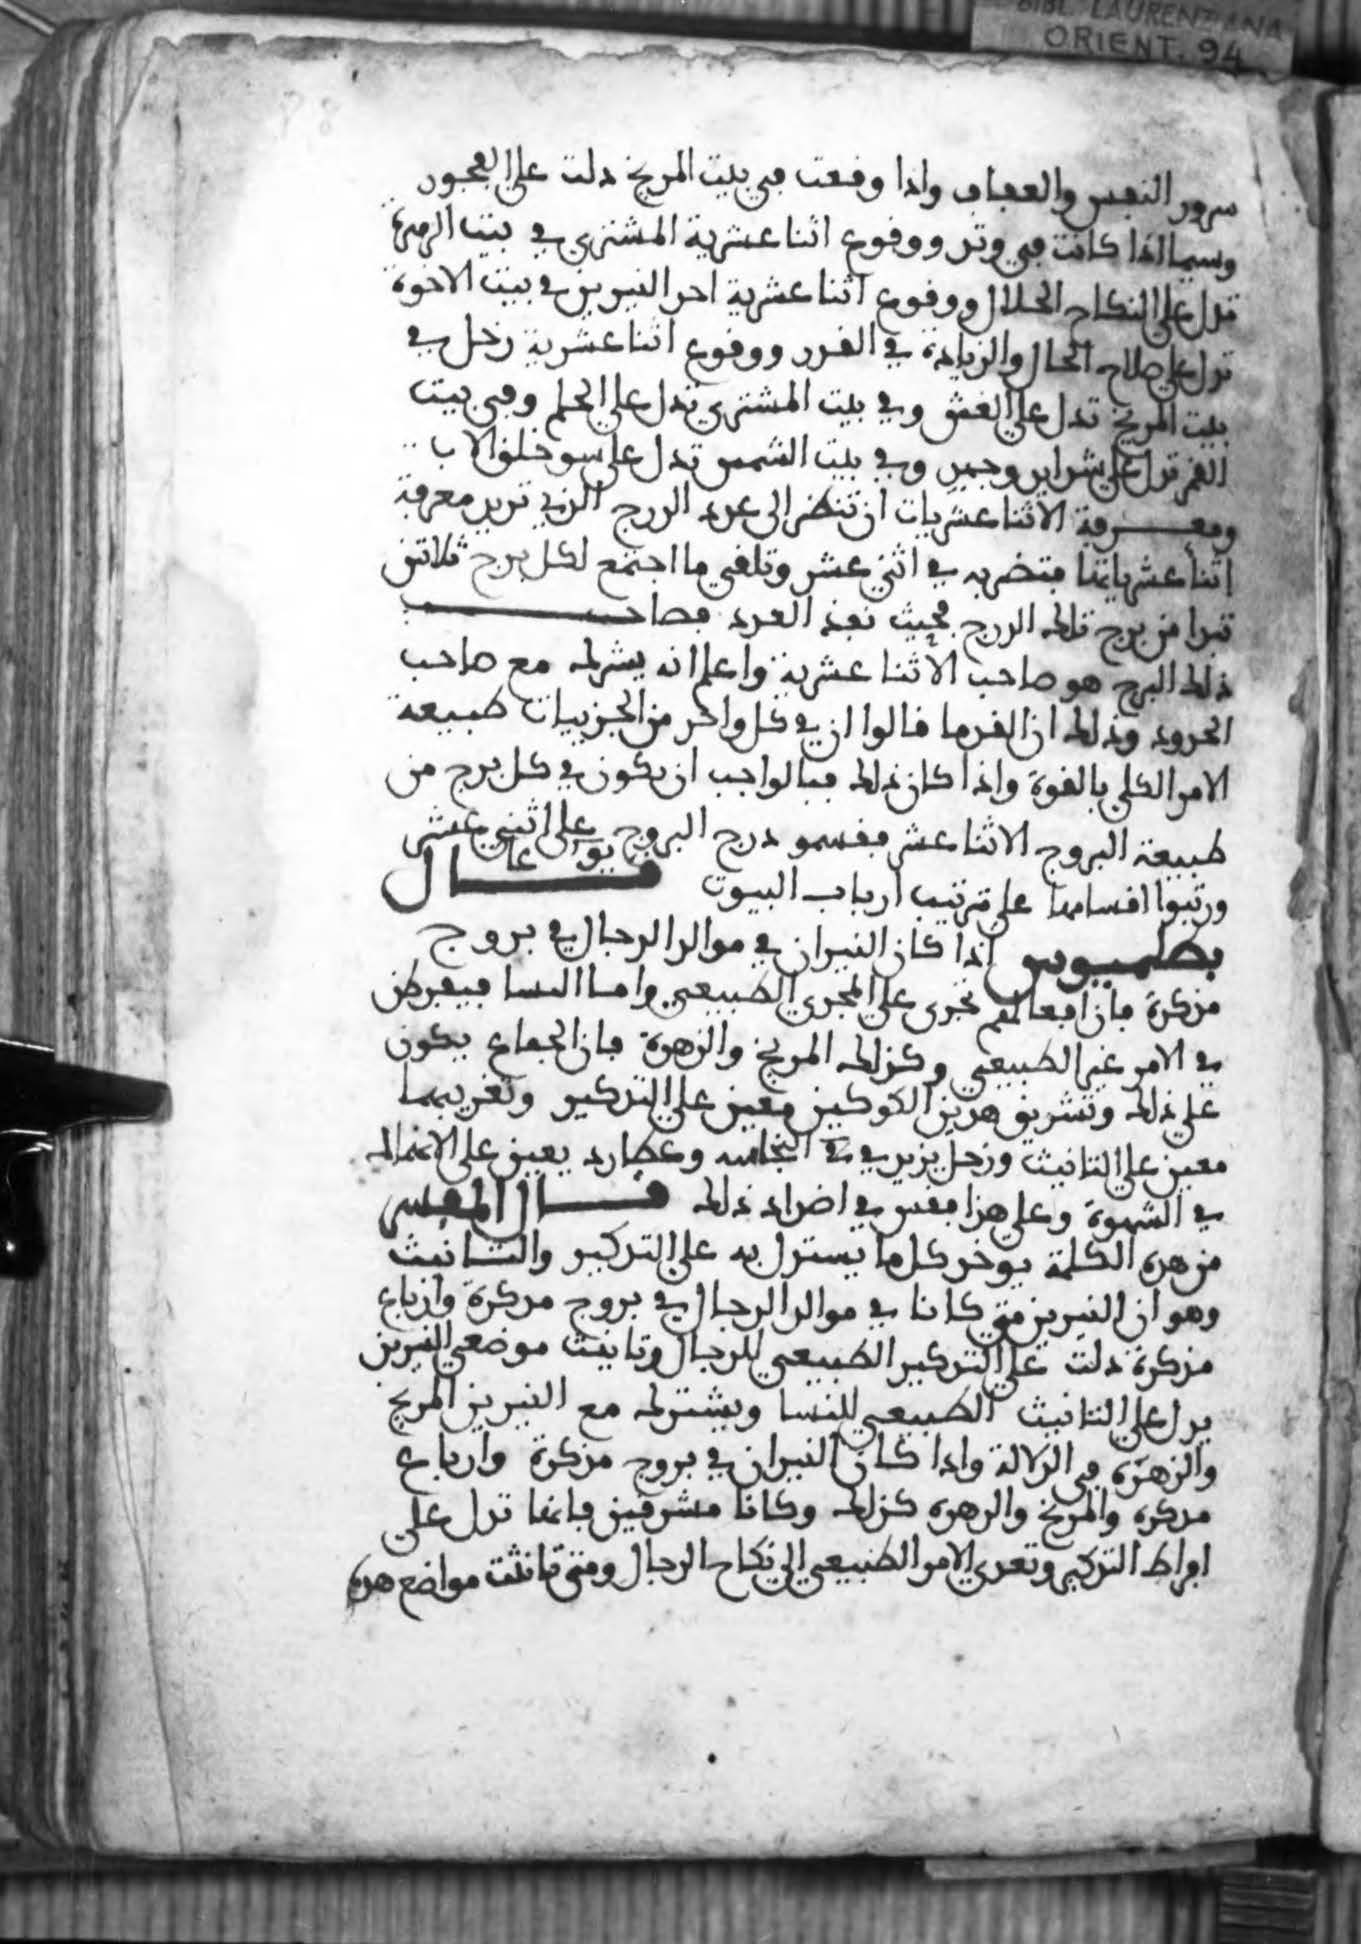 BIBL. LAURENZIANA
ORIENT. 94
88
سرور النفس والعفاف واذا وقعت في بيت المريخ دلت على الفجور
وسيما اذا كانت في وتر ووقوع اثنا عشرية المشتري في بيت الزهرة
تدل على النكاح الحلال ووقوع اثنا عشرية احد النيرين في بيت الاخوة
تدل على صلاح الحال والزيادة في القدر ووقوع اثنا عشرية زحل في
بيت المريخ تدل على الغش وفي بيت المشتري تدل على الحلم وفي بيت
القمر تدل على وفي بيت الشمس تدل على سو خلق الاب
ومعرفة الاثنا عشريات ان تنظر الى عدد الدرج الذي تريد معرفة
اثنا عشرياتها فتضربه في اثني عشر وتلقي ما اجتمع لكل برج ثلاثين
تبدا من برج تلك الدرج فحيث نفذ العدد فصاحب
ذلك البرج هو صاحب الاثنا عشرية واعلم انه يشرك مع صاحب
الحدود وذلك ان القدما قالوا ان في كل واحد من الجزييات طبيعة
الامر الكلي بالقوة واذا كان ذلك فبالواجب ان يكون في كل برج من
طبيعة البروج الاثنا عشر فقسمو درج البروج على اثني عشر
ورتبوا اقسامها على ترتيب ارباب البيوت قال
بطلميوس اذا كان النيران في موالد الرجال في بروج
مذكرة فان افعالهم تجري على المجرى الطبيعي واما النسا فيفرطن
في الامر غير الطبيعي وكذلك المريخ والزهرة فان الجماع يكون
على ذلك وتشريق هذين الكوكبين معين على التذكير وتغريبهما
معين على التانيث وزحل يزيد في وعطارد يعين على الانهماك
في الشهوة وعلى هذا فقس في اضداد ذلك قال المفسر
من هذه الكلمة يوخذ كل ما يستدل به على التذكير والتانيث
وهو ان النيرين متى كانا في موالد الرجال في بروج مذكرة وارباع
مذكرة دلت على التذكير الطبيعي للرجال وتانيث موضعي النيرين
يدل على التانيث الطبيعي للنسا ويشترك مع النيرين المريخ
والزهرة في الدلالة واذا كان النيران في بروج مذكرة وارباع
مذكرة والمريخ والزهرة كذلك وكانا مشرقين فانها تدل على
افراط التذكير وتعدي الامر الطبيعي الى نكاح الرجال ومتى تانثت مواضع هذه